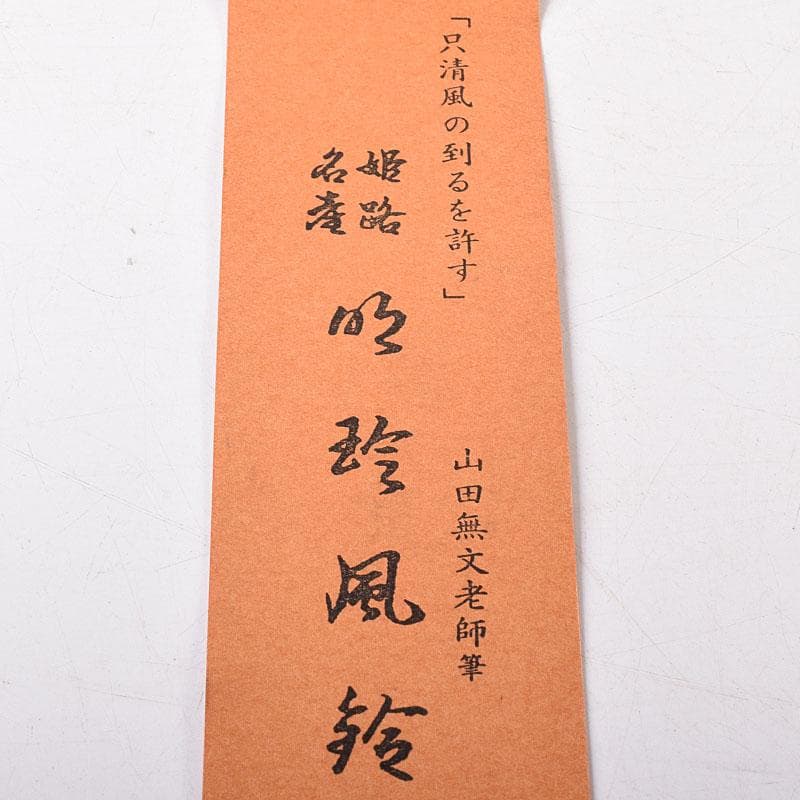 「只清風の到るを許す」
山田無文老師筆
姫路
名産
明玲風鈴